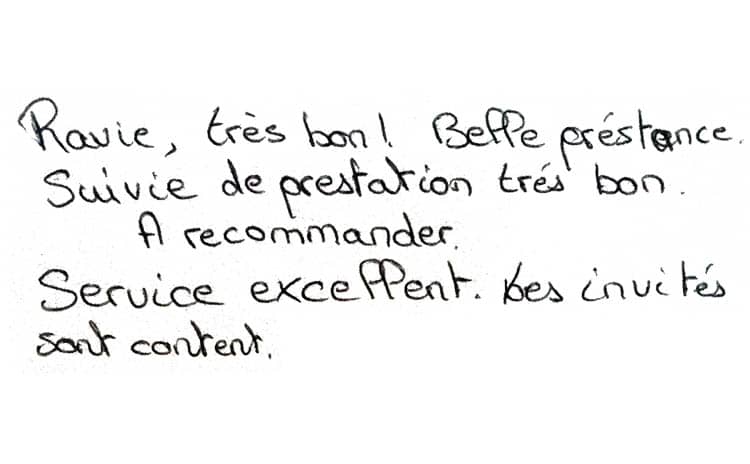 Ravie, très bon! Belle préstance.
Suivie de prestation trés bon.
A recommander.
Service excellent. Les invités
sont content.